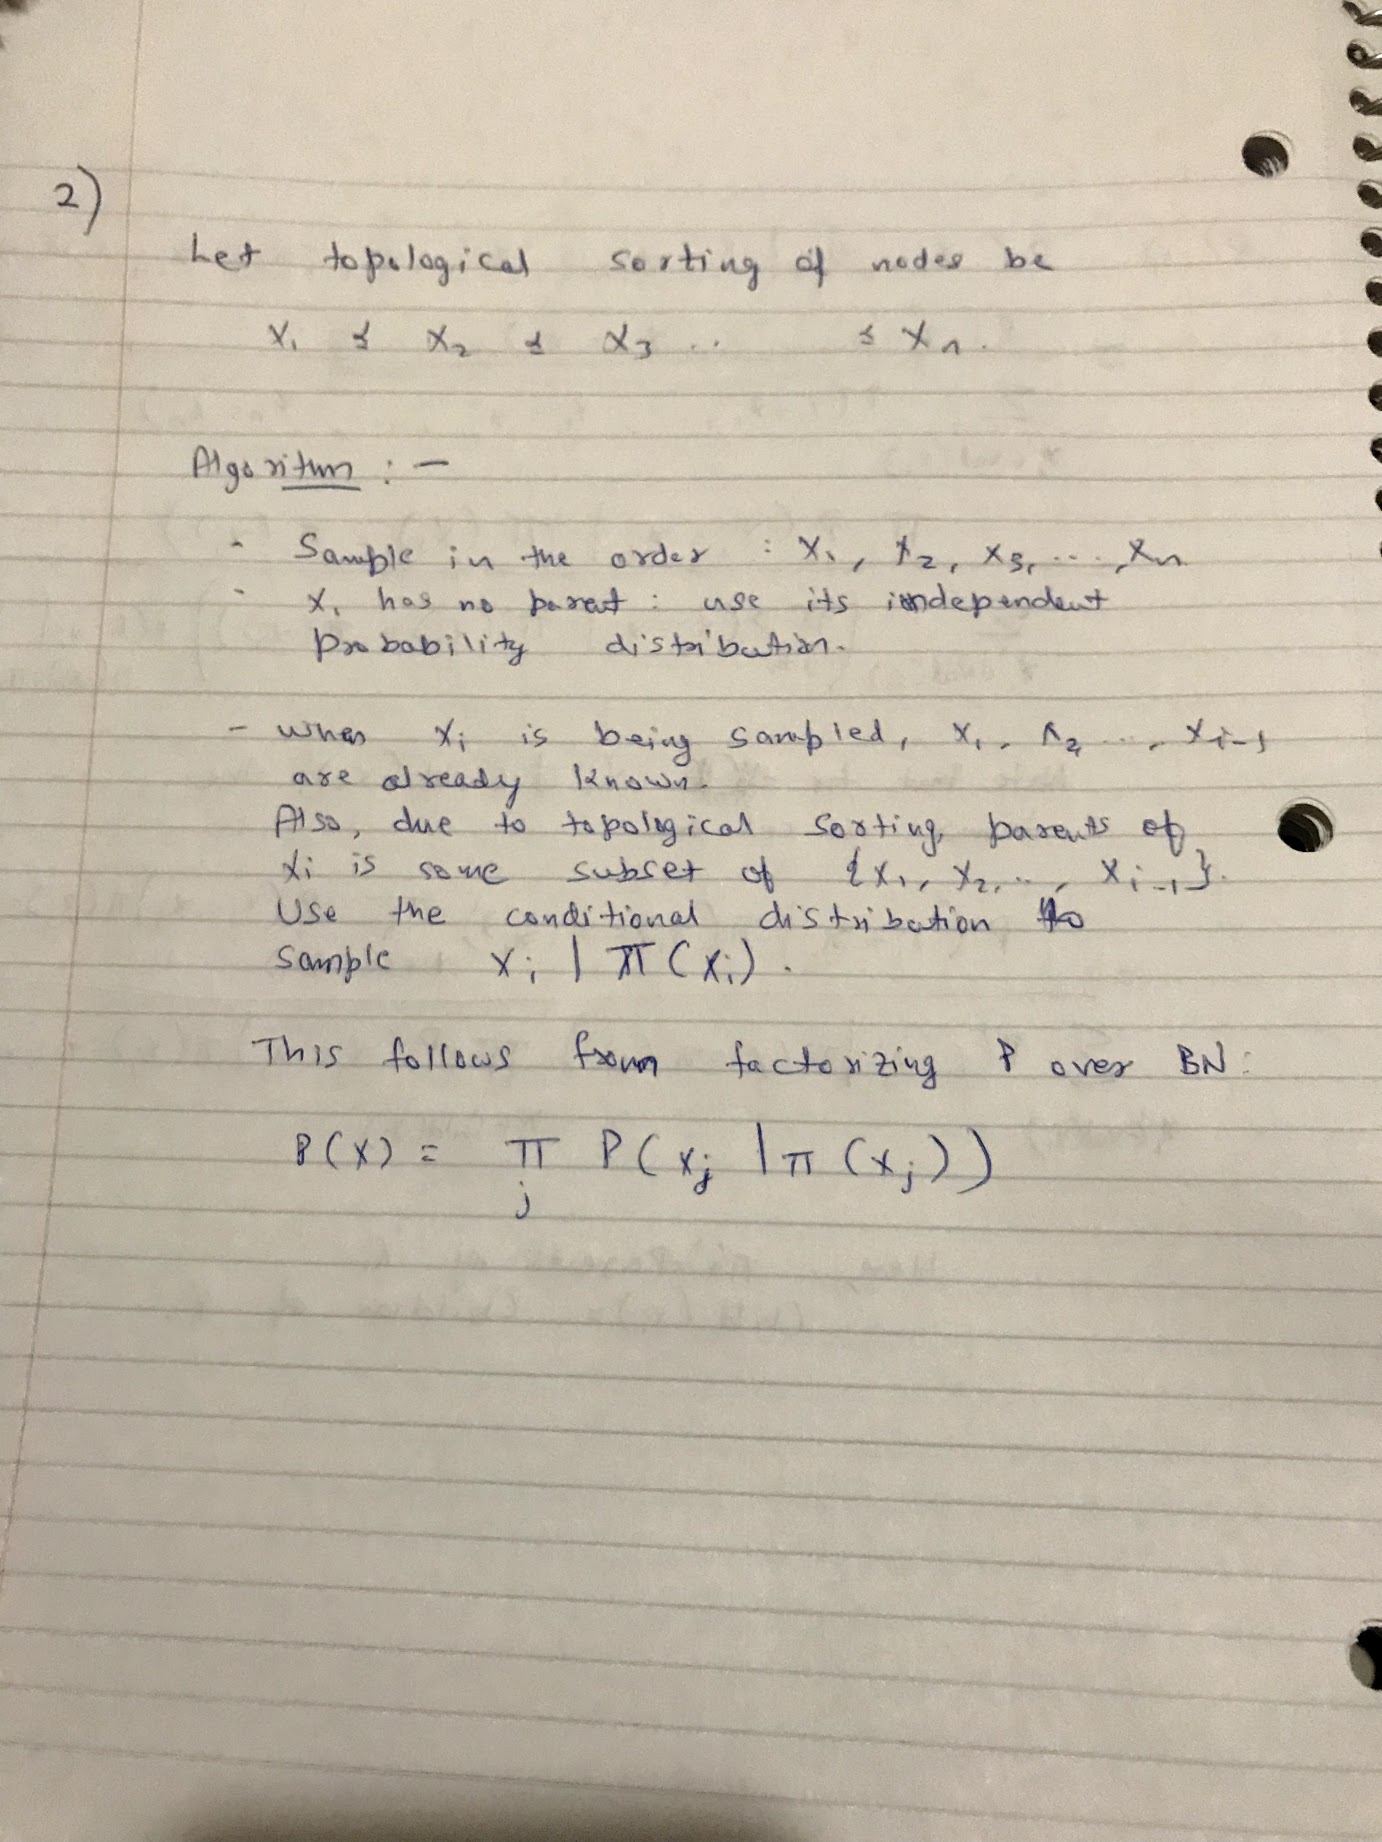 2)
Let topological sorting of nodes be
X₁ ≤ X₂ ≤ X₃ .. ≤ Xₙ.
Algorithm : —
- Sample in the order : X₁, X₂, X₃, ..., Xₙ
- X₁ has no parent : use its independent
probability distribution.
- When Xᵢ is being sampled, X₁, X₂ ..., Xᵢ₋₁
are already known.
Also, due to topological sorting, parents of
Xᵢ is some subset of {X₁, X₂, .., Xᵢ₋₁}.
Use the conditional distribution to
sample Xᵢ | π(Xᵢ).
This follows from factorizing P over BN:
P(X) = Π P(Xⱼ | π(Xⱼ))
j